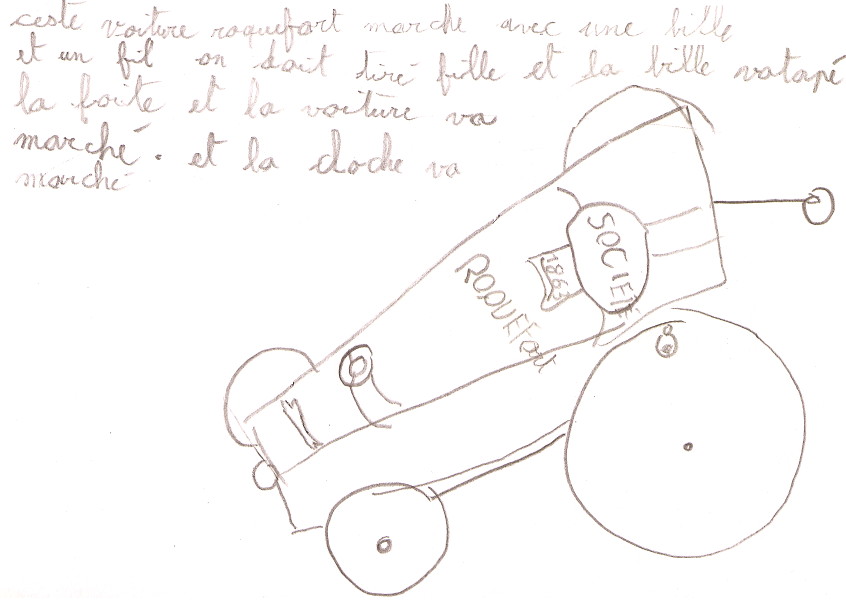 ceste voiture roquefort marche avec une bille
et un fil on doit tiré fille et la bille vatapé
la boite et la voiture va
marché. et la cloche va
marché
SOCIETE
1863
ROQUEFort